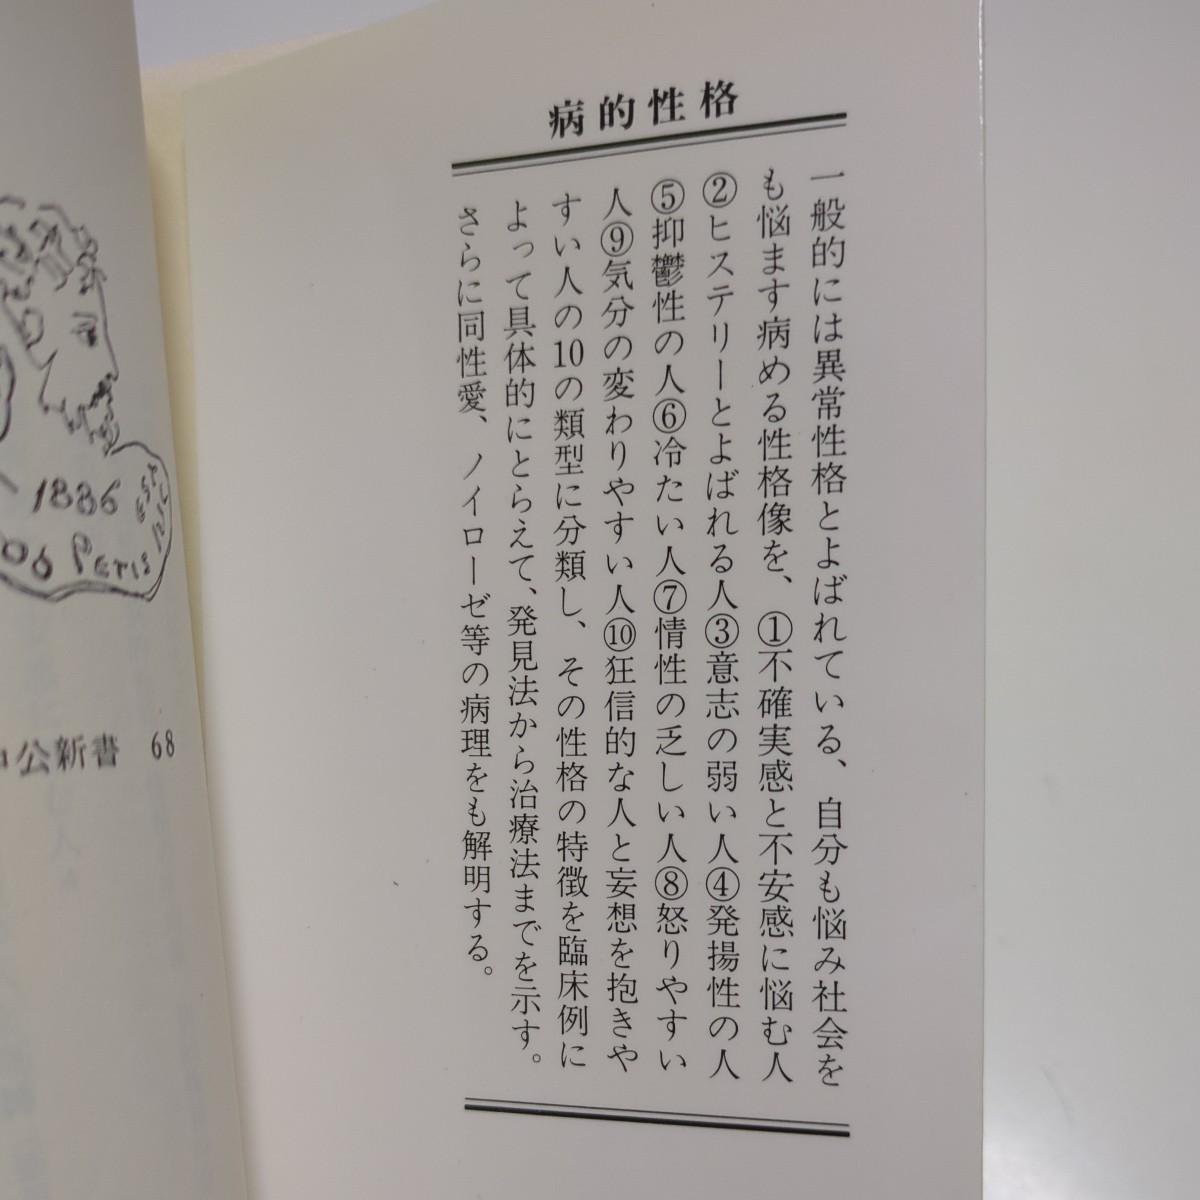 病的性格
一般的には異常性格とよばれている、自分も悩み社会を
も悩ます病める性格像を、①不確実感と不安感に悩む人
②ヒステリーとよばれる人③意志の弱い人④発揚性の人
⑤抑鬱性の人⑥冷たい人⑦情性の乏しい人⑧怒りやすい
人⑨気分の変わりやすい人⑩狂信的な人と妄想を抱きや
すい人の10の類型に分類し、その性格の特徴を臨床例に
よって具体的にとらえて、発見法から治療法までを示す。
さらに同性愛、ノイローゼ等の病理をも解明する。
1886
06 Paris
公新書 68